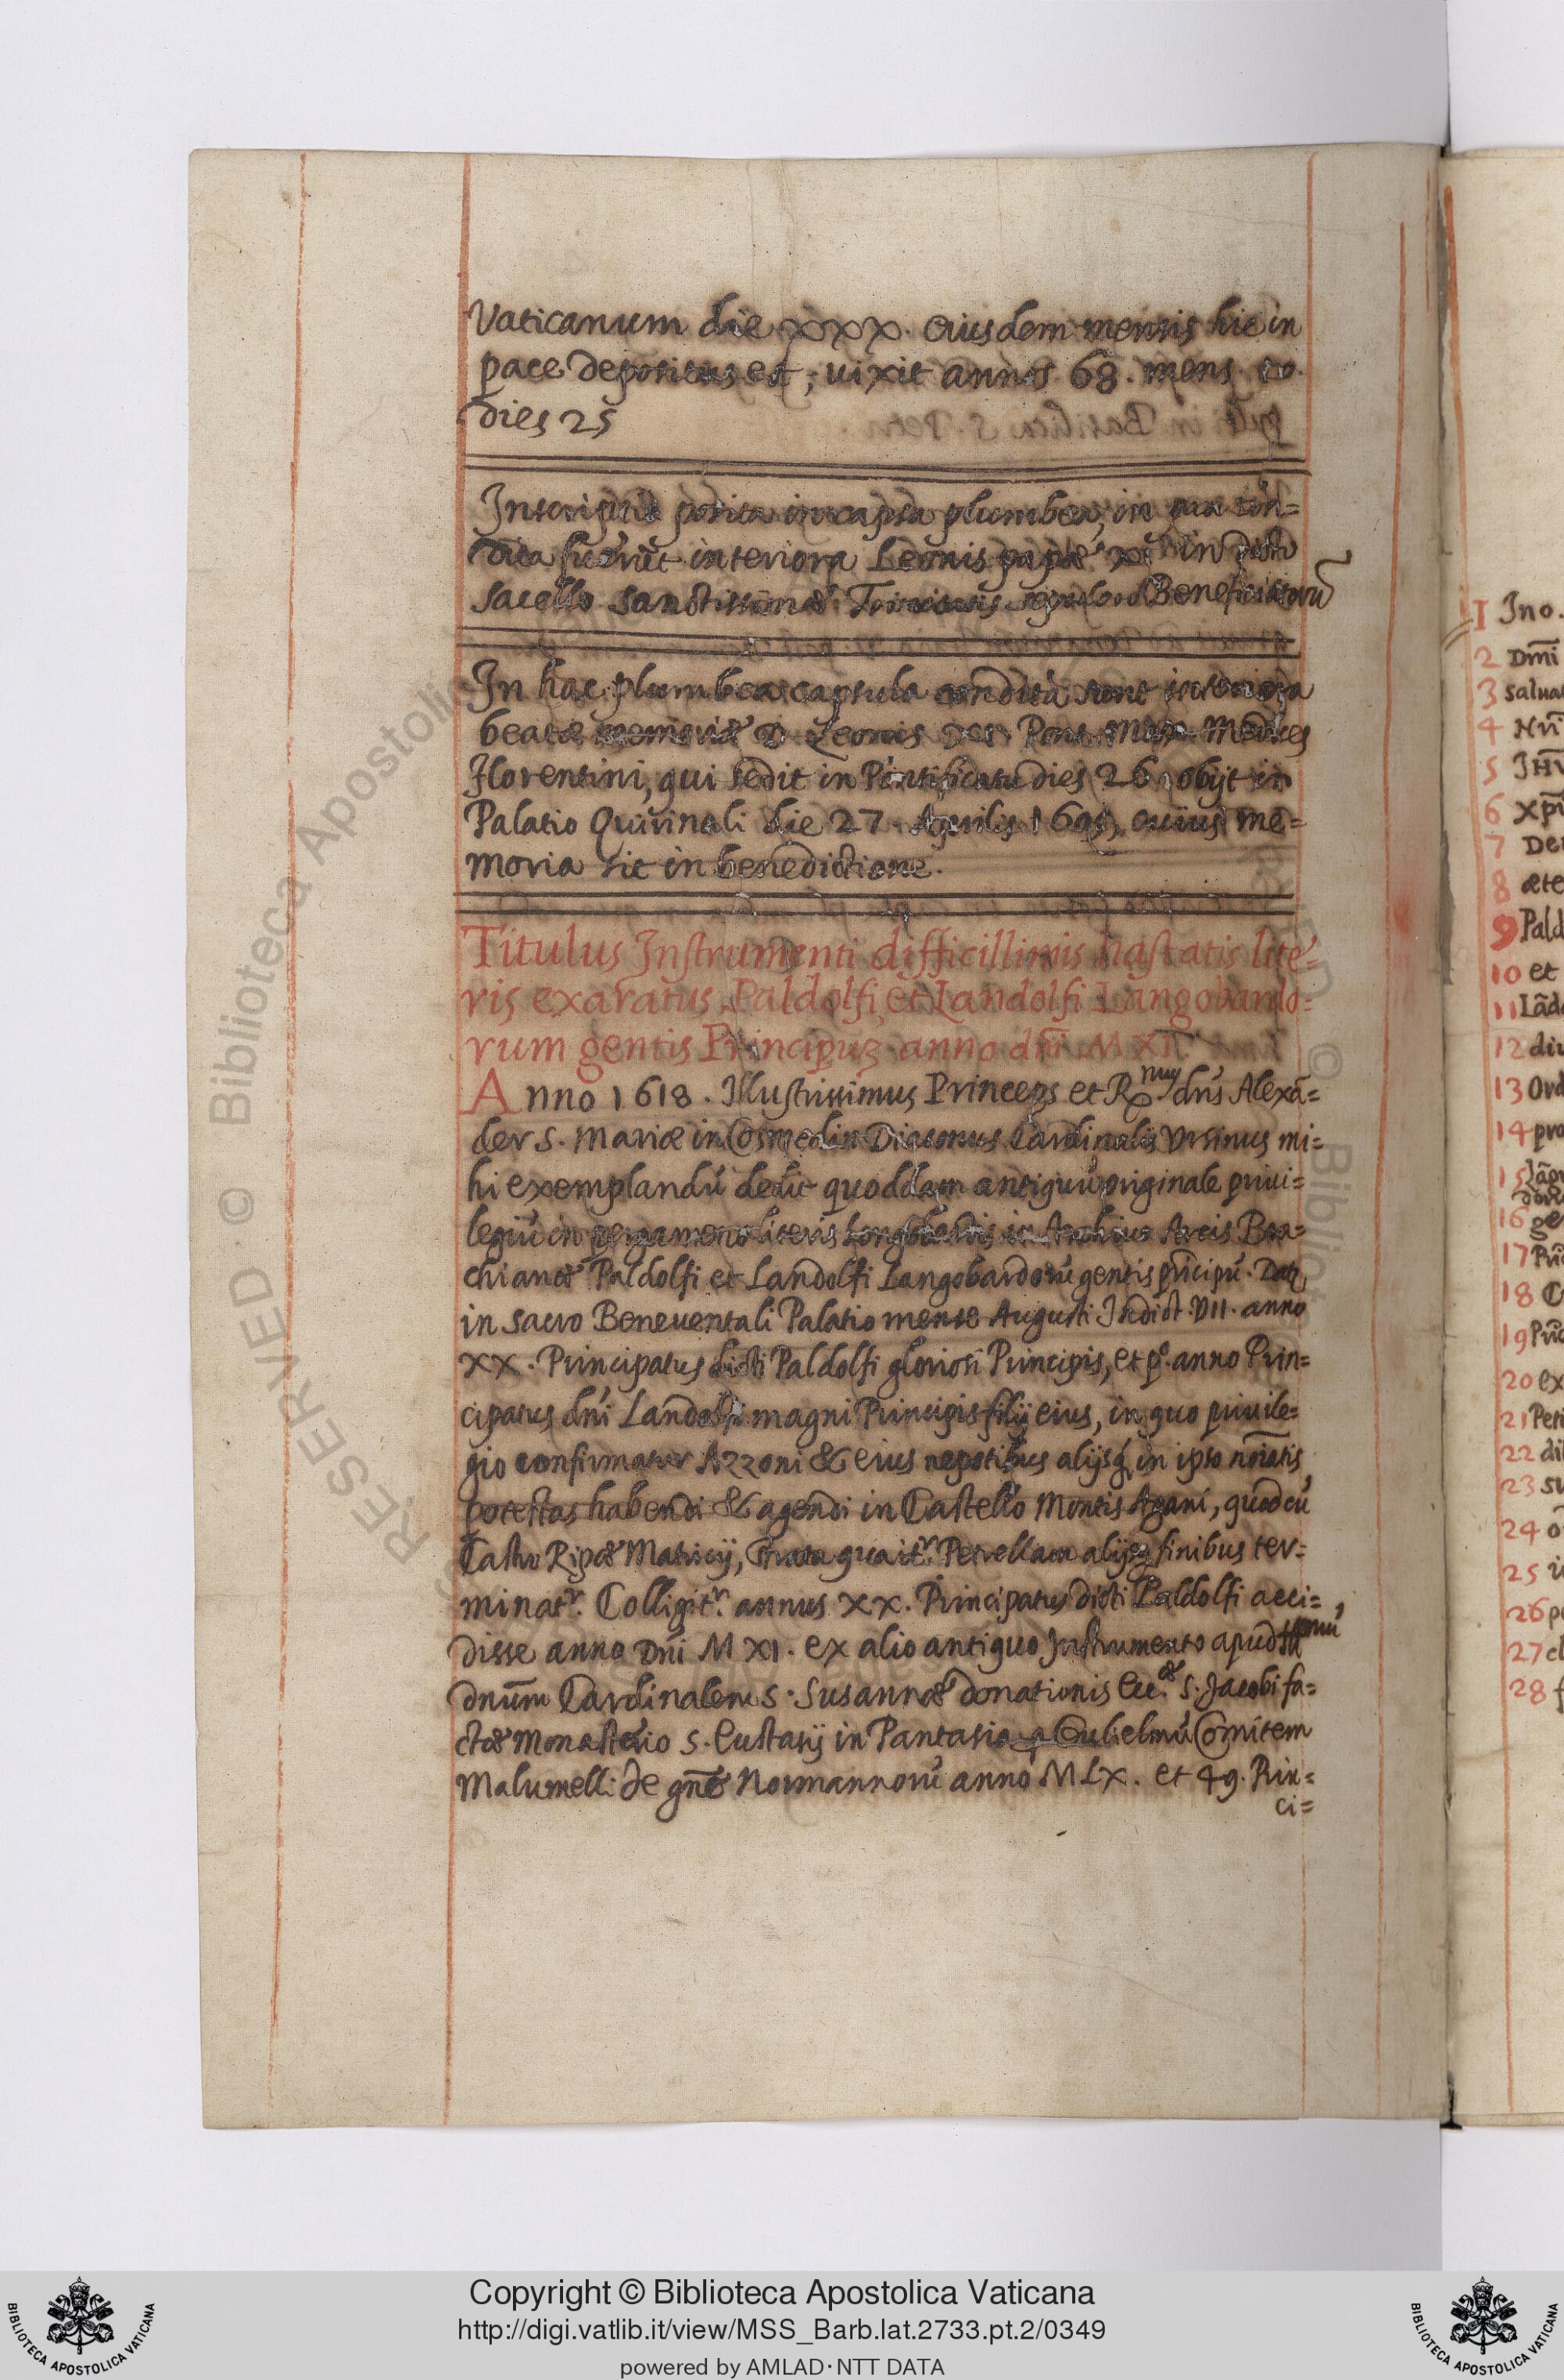 Vaticanum die XXX. eiusdem mensis hic in
pace depositus est; uixit annos 68. mens.
dies 25
Inscriptio posita in capsa plumbea, in qua con=
dita fuerũt interiora Leonis papæ XI in
sacello Sanctissimæ Trinitatis Beneficiatorũ
In hac plumbea capsula condita sunt interiora
beatæ memoriæ D. Leonis XI Pont. Max. Medices
Florentini, qui sedit in Põtificatu dies 26. obijt in
Palatio Quirinali die 27. Aprilis 1605, cuius me=
moria sit in benedictione.
Titulus Instrumenti difficillimis hastatis lite=
ris exaratus, Paldolfi, et Landolfi Langobardo=
rum gentis Principuz anno dñi MXI.
Anno 1618. Illustrissimus Princeps et R.mus dñs Alexã=
der S. Mariæ in Cosmedin Diaconus Cardinalis Vrsinus mi=
hi exemplandũ dedit quoddam antiquũ originale priui=
legiũ in pergameno literis Longobardis in Archiuo Arcis Bra=
chianæ Paldolfi et Landolfi Langobardorũ gentis prĩcipũ. Dat.
in sacro Beneuentali Palatio mense Augusti Indict. VII. anno
XX. Principatus dicti Paldolfi gloriosi Principis, et p.º anno Prin=
cipatus dñi Landolfi magni Principis filij eius, in quo priuile=
gio confirmatur Azzoni & eius nepotibus alijsq. in ipso noĩatis
potestas habendi & agendi in Castello Montis Agani, quod cũ
Castro Ripæ Matricij, Petrellam alijsq. finibus ter=
minatr. Colligitr. annus XX. Principatus dicti Paldolfi acci=
disse anno Dñi MXI. ex alio antiquo Instrumento apud
dnũm Cardinalem S. Susannæ donationis Ecc.æ S. Jacobi fa=
ctæ Monasterio S. Eustasij in Pantasia a Gulielmũ Comitem
Malumelli de gñe Normannorũ anno MLX. et 49. Prin=
ci=
1 Ino.
2 Dmĩ
3 salua
4 Nrĩ
5 JHV
6 Xpĩ
7 De
8 æte
9 Pald
10 et
11 Lãd
12 diu
13 Ord
14 pro
15
16 ge
17 Pri
18 C
19 Pri
20 ex
21 Petr
22 di
23 su
24 o
25
26 p
27 el
28 f
RESERVED © Biblioteca Apostolic
© Bibliot
Copyright © Biblioteca Apostolica Vaticana
http://digi.vatlib.it/view/MSS_Barb.lat.2733.pt.2/0349
powered by AMLAD·NTT DATA
BIBLIOTECA APOSTOLICA VATICANA
BIBLIOTECA APOSTOLICA VATICANA